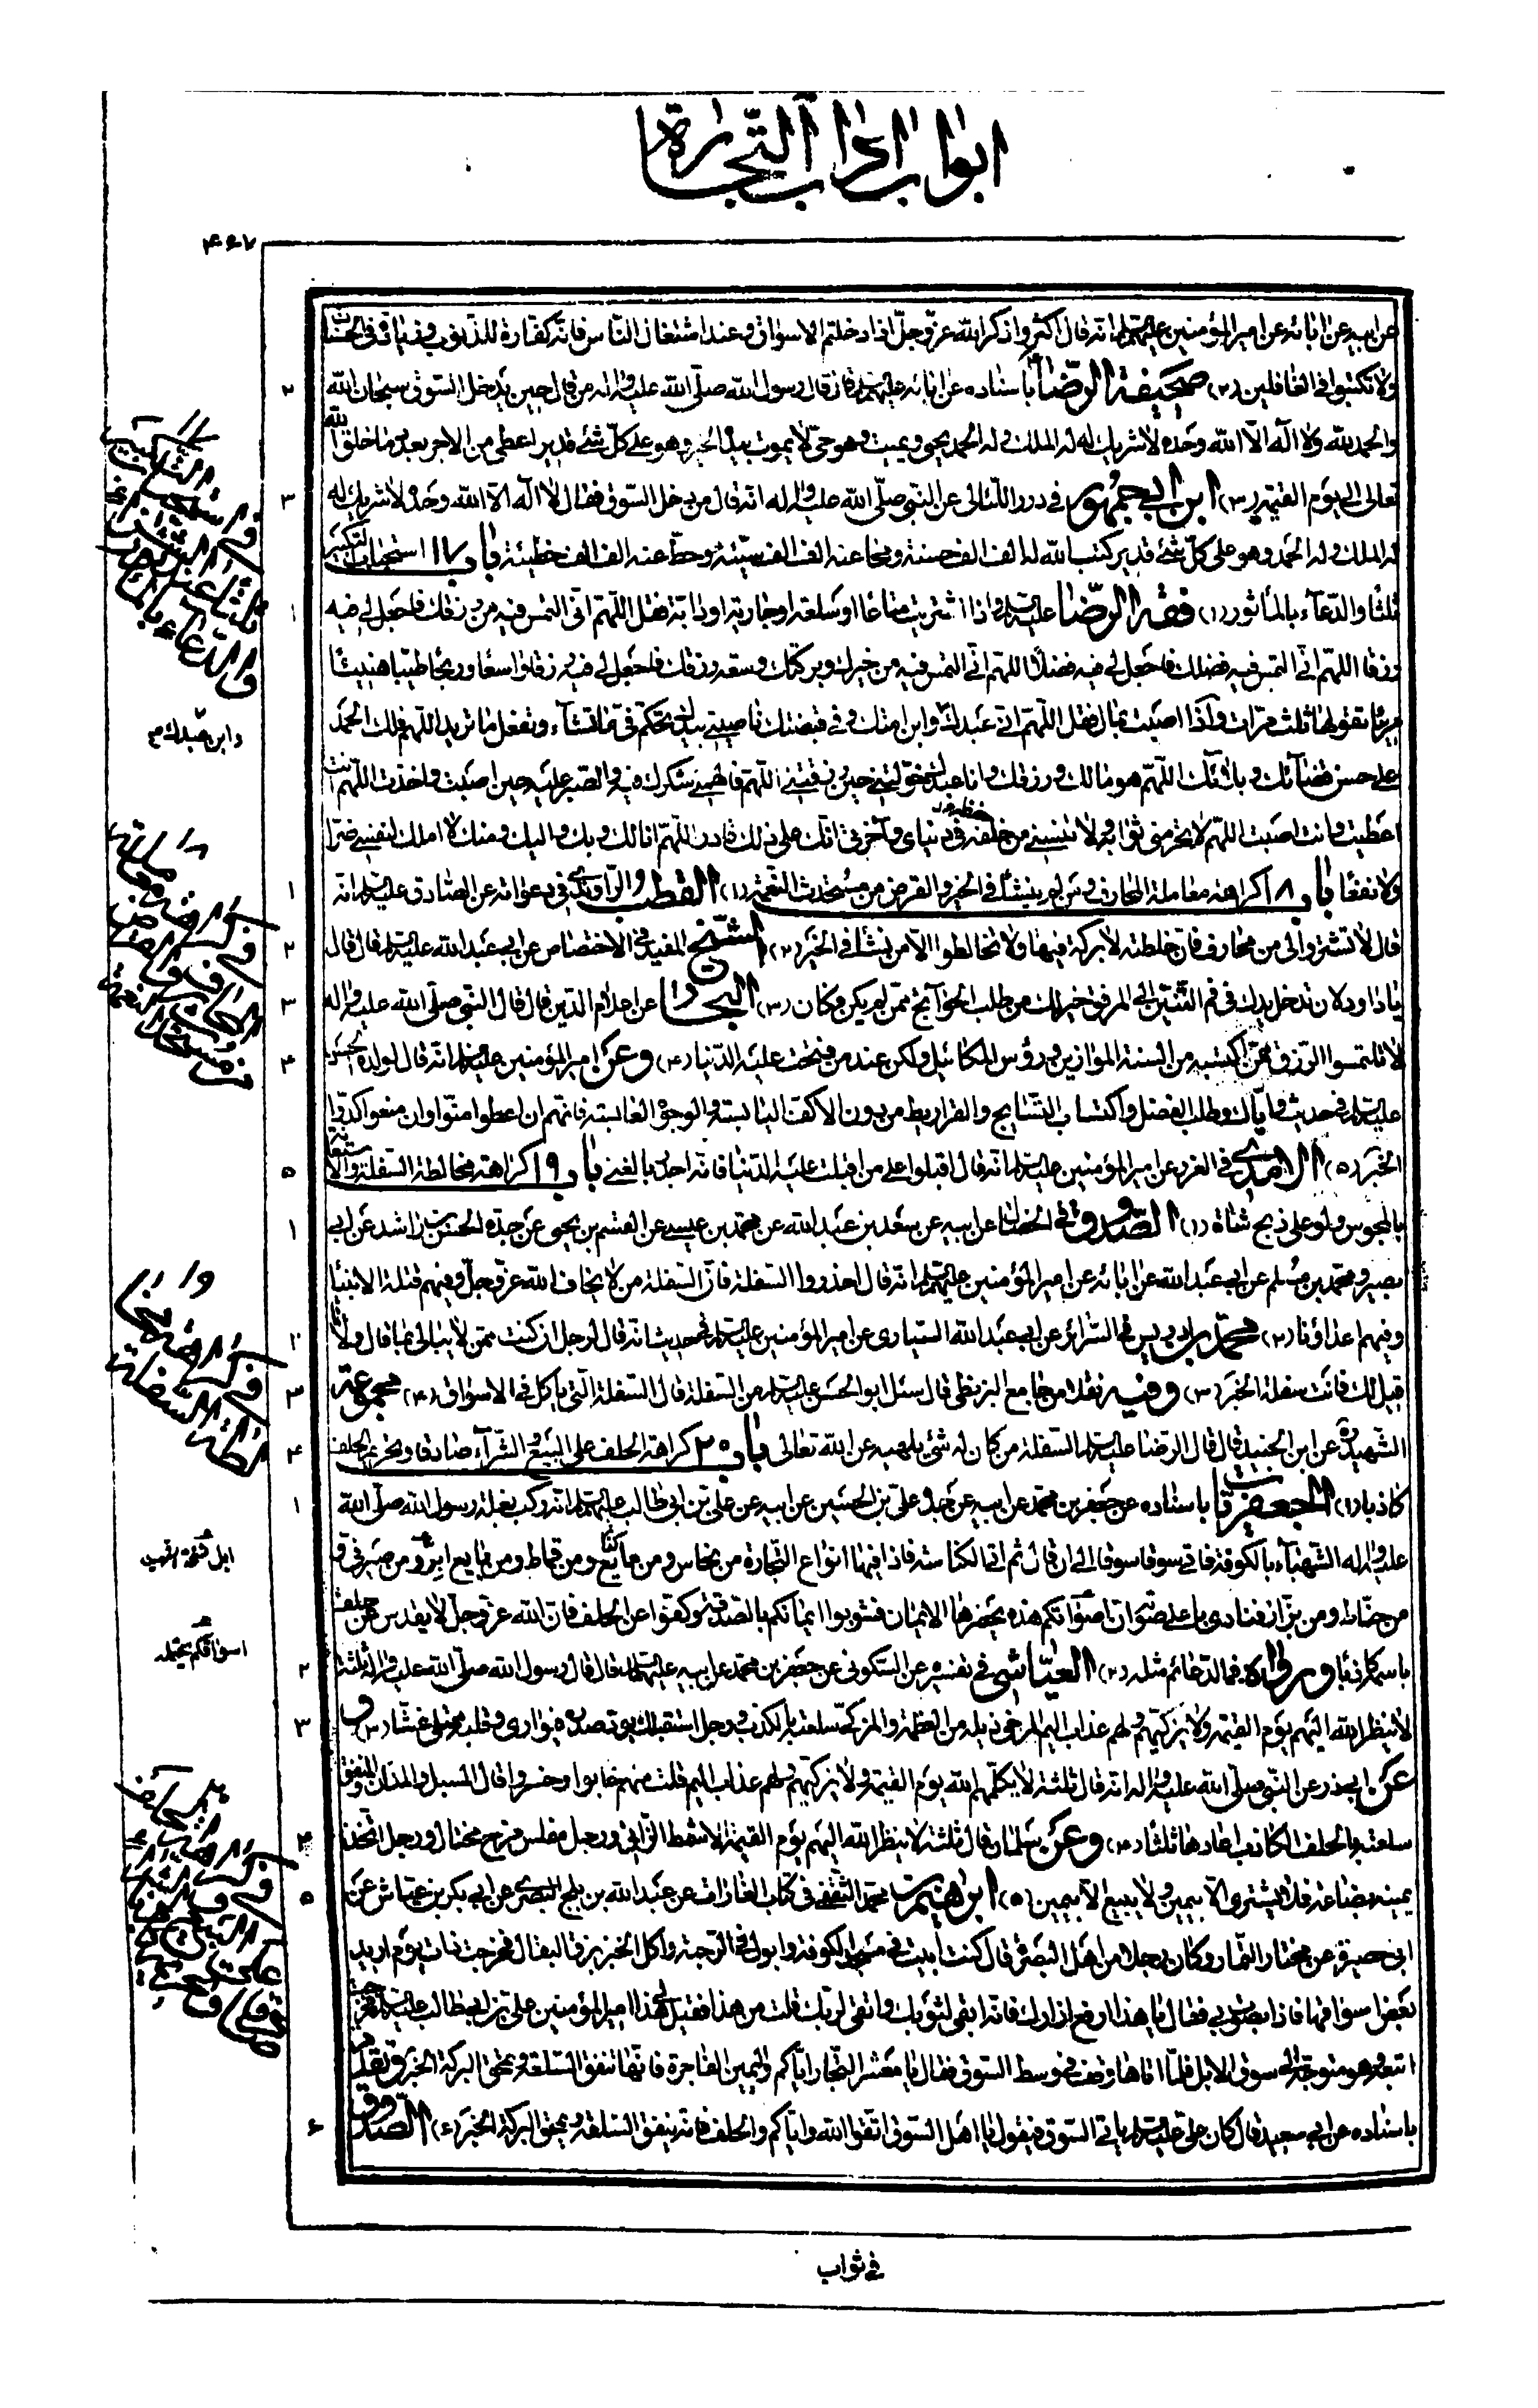 ابواب آداب التجارة
۴۶۷
عن ابيه عن آبائه عن امير المؤمنين عليهم السلام انه قال اكثروا ذكر الله عز وجل اذا دخلتم الاسواق وعند اشتغال الناس فانه كفارة للذنوب وزيادة في الحسنات
ولا تكتبوا في الغافلين (۲) صحيفة الرضا باسناده عن آبائه عليهم السلام قال قال رسول الله صلى الله عليه وآله من قال حين يدخل السوق سبحان الله
والحمد لله ولا اله الا الله وحده لا شريك له له الملك وله الحمد يحيي ويميت وهو حي لا يموت بيده الخير وهو على كل شئ قدير اعطي من الاجر بعدد ما خلق الله
تعالى الى يوم القيمة (۳) ابن ابي جمهور في درر اللئالي عن النبي صلى الله عليه وآله انه قال من دخل السوق فقال لا اله الا الله وحده لا شريك له
له الملك وله الحمد وهو على كل شئ قدير كتب الله له الف الف حسنة ومحا عنه الف الف سيئة وحط عنه الف الف خطيئة باب ۱۷ استحباب التكبير
ثلثا والدعاء بالمأثور (۱) فقه الرضا عليه السلام واذا اشتريت متاعا او سلعة او جارية او دابة فقل اللهم اني التمس فيه من رزقك فاجعل لي فيه
رزقا اللهم اني التمس فيه فضلك فاجعل لي فيه فضلا اللهم اني التمس فيه من خيرك وبركتك وسعة رزقك فاجعل لي فيه رزقا واسعا وربحا طيبا هنيئا
مريئا تقولها ثلث مرات واذا اصبت بمال فقل اللهم اني عبدك وابن امتك وفي قبضتك ناصيتي بيدك تحكم في ما تشاء وتفعل ما تريد اللهم فلك الحمد
على حسن قضائك وبلائك اللهم هو مالك ورزقك وانا عبدك خولتني حين رزقتني اللهم فالهمني شكرك فيه والصبر عليه حين اصبت واخذت اللهم انت
اعطيت وانت اصبت اللهم لا تحرمني ثوابه ولا تنسني من خلفه في دنياي وآخرتي انك على ذلك قادر اللهم انا لك وبك واليك ومنك لا املك لنفسي ضرا
ولا نفعا باب ۱۸ كراهة معاملة المحارف ومن لم ينشأ في الخير والقرض من مستحدث النعمة (۱) القطب الراوندي في دعواته عن الصادق عليه السلام انه
قال لا تشتر لي من محارف فان خلطته لا بركة فيها ولا تخالطوا الا من نشأ في الخير (۲) الشيخ المفيد في الاختصاص عن ابي عبد الله عليه السلام قال قال
يا داود لان تدخل يدك في فم التنين الى المرفق خير لك من طلب الحوائج ممن لم يكن وكان (۳) البحار عن اعلام الدين قال قال النبي صلى الله عليه وآله
لا تلتمسوا الرزق ممن اكتسبه من السنة الموازين ورؤس المكائيل ولكن عند من فتحت عليه الدنيا (۴) وعن امير المؤمنين عليه السلام انه قال لولده الحسن
عليه السلام في حديث واياك وطلب الفضل واكتساب الطساسيج والقراريط من دون الاكف اليابسة والوجوه العابسة فانهم ان اعطوا منوا وان منعوا كدوا
الخبر (۵) الآمدي في الغرر عن امير المؤمنين عليه السلام انه قال اقبلوا على من اقبلت عليه الدنيا فانه اجدر بالغنى باب ۱۹ كراهة مخالطة السفلة والاستعانة
بالمجوس ولو على ذبح شاة (۱) الصدوق في الخصال عن ابيه عن سعد بن عبد الله عن محمد بن عيسى عن القسم بن يحيى عن جده الحسن بن راشد عن ابي
بصير ومحمد بن مسلم عن ابي عبد الله عن آبائه عن امير المؤمنين عليهم السلام انه قال احذروا السفلة فان السفلة من لا يخاف الله عز وجل وفيهم قتلة الانبياء
وفيهم اعداؤنا (۲) محمد بن ادريس في السرائر عن ابي عبد الله السياري عن امير المؤمنين عليه السلام في حديث انه قال لرجل ان كنت ممن لا يبالي بما قال ولا ما
قيل لك فانت سفلة الخبر (۳) وفيه نقلا من جامع البزنطي قال سئل ابو الحسن عليه السلام من السفلة قال السفلة التي ياكل في الاسواق (۴) مجموعة
الشهيدره عن ابن الجنيد قال قال الرضا عليه السلام السفلة من كان له شئ يلهيه عن الله تعالى باب ۲۰ كراهة الحلف على البيع والشراء صادقا وتحريم الحلف
كاذبا (۱) الجعفريات باسناده عن جعفر بن محمد عن ابيه عن جده علي بن الحسين عن ابيه عن علي بن ابي طالب عليهم السلام انه ركب بغلة رسول الله صلى الله
عليه وآله الشهباء بالكوفة فاتى سوقا سوقا الى ان قال ثم اتى الكناسة فاذا فيها انواع التجارة من نحاس ومن مائع ومن قماط ومن بايع ابر ومن صيرفي و
من حناط ومن بزاز فنادى باعلى صوته ان اسواقكم هذه يحضرها الايمان فشوبوا ايمانكم بالصدقة وكفوا عن الحلف فان الله عز وجل لا يقدس من حلف
باسمه كاذبا ورواه في الدعائم مثله (۲) العياشي في تفسيره عن السكوني عن جعفر بن محمد عن ابيه عليهما السلام قال قال رسول الله صلى الله عليه وآله ثلثة
لا ينظر الله اليهم يوم القيمة ولا يزكيهم ولهم عذاب اليم المرخي ذيله من العظمة والمزكي سلعته بالكذب ورجل استقبلك بود صدره فيواري وقلبه ممتلي غشا (۳) و
عن ابي ذر عن النبي صلى الله عليه وآله انه قال ثلثة لا يكلمهم الله يوم القيمة ولا يزكيهم ولهم عذاب اليم قلت من هم خابوا وخسروا قال المسبل والمنان والمنفق
سلعته بالحلف الكاذب اعادها ثلثا (۴) وعن سلمان قال ثلثة لا ينظر الله اليهم يوم القيمة الاشمط الزاني ورجل مفلس مرح مختال ورجل اتخذ
يمينه بضاعة فلا يشتري الا بيمين ولا يبيع الا بيمين (۵) ابراهيم بن محمد الثقفي في كتاب الغارات عن عبد الله بن بلج البصري عن ابي بكر بن عياش عن
ابي حصيرة عن مختار التمار وكان رجلا من اهل البصرة قال كنت ابيت في مسجد الكوفة وابول في الرحبة وآكل الخبز بزق البقال فخرجت ذات يوم اريد
بعض اسواقها فاذا بصوت بي فقال يا هذا ارفع ازارك فانه ابقى لثوبك واتقى لربك قلت من هذا فقيل لي هذا امير المؤمنين علي بن ابي طالب عليه السلام فخرجت
اتبعه وهو متوجه الى سوق الابل فلما اتاها وقف في وسط السوق فقال يا معشر التجار اياكم واليمين الفاجرة فانها تنفق السلعة وتمحق البركة الخبر وتقدم
باسناده عن ابي سعيد قال كان علي عليه السلام ياتي السوق فيقول يا اهل السوق اتقوا الله واياكم والحلف فانه ينفق السلعة ويمحق البركة الخبر (۶) الصدوق
وابن عبدك م
ابل نسخة الشهيد
اسواقكم يحتمله
في ثواب